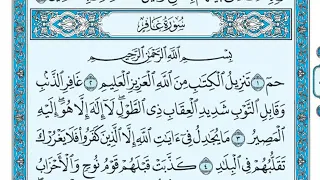 سُورَةُ غَافِرٍ
بِسْمِ اللَّهِ الرَّحْمَٰنِ الرَّحِيمِ
حمٓ ١ تَنزِيلُ الْكِتَٰبِ مِنَ اللَّهِ الْعَزِيزِ الْعَلِيمِ ٢ غَافِرِ الذَّنۢبِ
وَقَابِلِ التَّوْبِ شَدِيدِ الْعِقَابِ ذِي الطَّوْلِ لَآ إِلَٰهَ إِلَّا هُوَ إِلَيْهِ
الْمَصِيرُ ٣ مَا يُجَٰدِلُ فِيٓ ءَايَٰتِ اللَّهِ إِلَّا الَّذِينَ كَفَرُوا۟ فَلَا يَغْرُرْكَ
تَقَلُّبُهُمْ فِي الْبِلَٰدِ ٤ كَذَّبَتْ قَبْلَهُمْ قَوْمُ نُوحٍ وَالْأَحْزَابُ